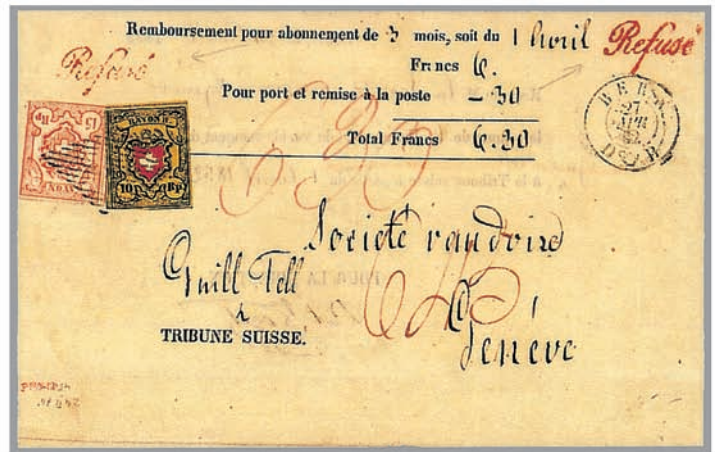 Remboursement pour abonnement de 3 mois, soit du 1 Avril
Refusé
Refusé
Francs 6.
Pour port et remise à la poste — 30
Total Francs 6.30
BERN
27
APR
52
RAYON II.
10 Rp
15 Rp
630
Société vaudoise
Guill Tell
à
TRIBUNE SUISSE.
645
Genève